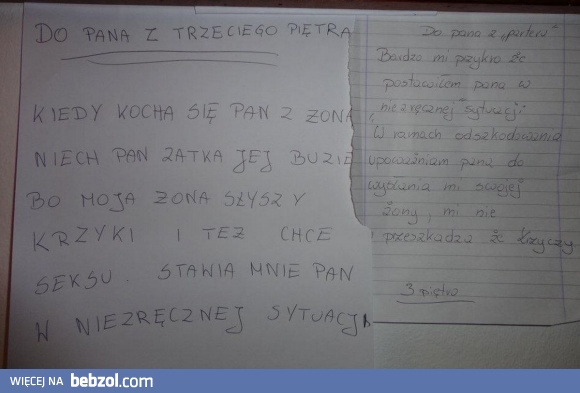 DO PANA Z TRZECIEGO PIĘTRA
KIEDY KOCHA SIĘ PAN Z ŻONA,
NIECH PAN ZATKA JEJ BUZIE
BO MOJA ŻONA SŁYSZY
KRZYKI I TEŻ CHCE
SEKSU. STAWIA MNIE PAN
W NIEZRĘCZNEJ SYTUACJI
Do pana z „parteru"
Bardzo mi przykro że
postawiłem pana w
niezręcznej sytuacji
W ramach odszkodowania
upoważniam pana do
wysłania mi swojej
żony, mi nie
przeszkadza że krzyczy
3 piętro
WIĘCEJ NA bebzol.com